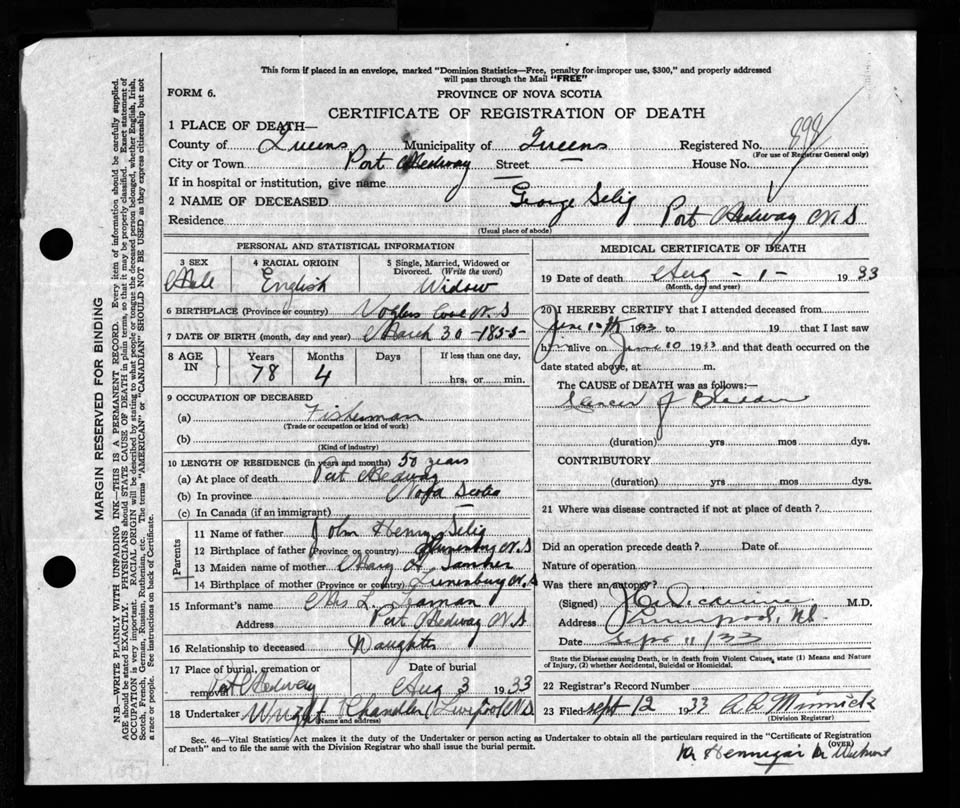 This form if placed in an envelope, marked "Dominion Statistics—Free, penalty for improper use, $300," and properly addressed
will pass through the Mail "FREE"
FORM 6.
PROVINCE OF NOVA SCOTIA
CERTIFICATE OF REGISTRATION OF DEATH
1 PLACE OF DEATH—
County of Queens Municipality of Queens Registered No.
(For use of Registrar General only)
City or Town Port Medway Street — House No.
If in hospital or institution, give name
2 NAME OF DECEASED George Selig
Residence Port Medway N S
(Usual place of abode)
PERSONAL AND STATISTICAL INFORMATION
3 SEX Male
4 RACIAL ORIGIN English
5 Single, Married, Widowed or Divorced. (Write the word) Widow
6 BIRTHPLACE (Province or country) Voglers Cove N.S
7 DATE OF BIRTH (month, day and year) March 30 - 1855-
8 AGE IN Years 78 Months 4 Days If less than one day, hrs. or min.
9 OCCUPATION OF DECEASED
(a) Fisherman
(Trade or occupation or kind of work)
(b)
(Kind of industry)
10 LENGTH OF RESIDENCE (in years and months) 50 years
(a) At place of death Port Medway
(b) In province Nova Scotia
(c) In Canada (if an immigrant) —
Parents
11 Name of father John Henry Selig
12 Birthplace of father (Province or country) Lunenburg N.S
13 Maiden name of mother Mary
14 Birthplace of mother (Province or country) Lunenburg N.S
15 Informant's name Mrs. L.
Address Port Medway N.S
16 Relationship to deceased Daughter
17 Place of burial, cremation or removal Port Medway
Date of burial Aug 3 1933
18 Undertaker Wright Chandler Liverpool NS
(Name and address)
MEDICAL CERTIFICATE OF DEATH
19 Date of death Aug - 1 - 1933
(Month, day and year)
20 I HEREBY CERTIFY that I attended deceased from
June 10th 1933 to 19 that I last saw
him alive on June 10 1933 and that death occurred on the
date stated above, at m.
The CAUSE of DEATH was as follows:—
Cancer of Bladder
(duration) yrs mos dys.
CONTRIBUTORY
(duration) yrs mos dys.
21 Where was disease contracted if not at place of death?
Did an operation precede death? Date of
Nature of operation
Was there an autopsy?
(Signed) M.D.
Address Liverpool, N.S.
Date Sept 11/33
State the Disease causing Death, or in death from Violent Causes, state (1) Means and Nature
of Injury, (2) whether Accidental, Suicidal or Homicidal.
22 Registrar's Record Number
23 Filed Sept 12 1933
(Division Registrar)
Sec. 46—Vital Statistics Act makes it the duty of the Undertaker or person acting as Undertaker to obtain all the particulars required in the "Certificate of Registration
of Death" and to file the same with the Division Registrar who shall issue the burial permit.
(OVER)
MARGIN RESERVED FOR BINDING
N.B.—WRITE PLAINLY WITH UNFADING INK—THIS IS A PERMANENT RECORD. Every item of information should be carefully supplied.
AGE should be stated EXACTLY. PHYSICIANS should STATE CAUSE OF DEATH in plain terms, so that it may be properly classified. Exact statement of
OCCUPATION is very important. RACIAL ORIGIN will be described by stating to what people or tongue the deceased person belonged, whether English, Irish,
Scotch, French, German, Russian, Ruthenian, etc. The terms "AMERICAN" or "CANADIAN" SHOULD NOT BE USED as they express citizenship but not
a race or people. See instructions on back of Certificate.